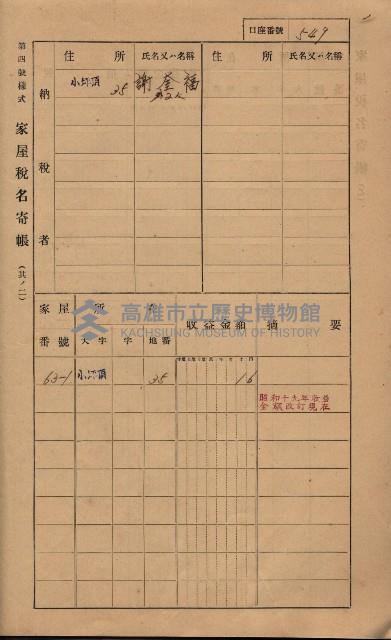 口座番號 549
第四號樣式 家屋稅名寄帳 (其ノ二)
納稅者
住所 氏名又ハ名稱 住所 氏名又ハ名稱
小坪頂 35 謝奎福
外2人
家屋番號 家屋所在 收益金額 摘要
大字 字 地番
63-1 小坪頂 35 16
昭和十九年收益
金額改訂現在
高雄市立歷史博物館
KAOHSIUNG MUSEUM OF HISTORY